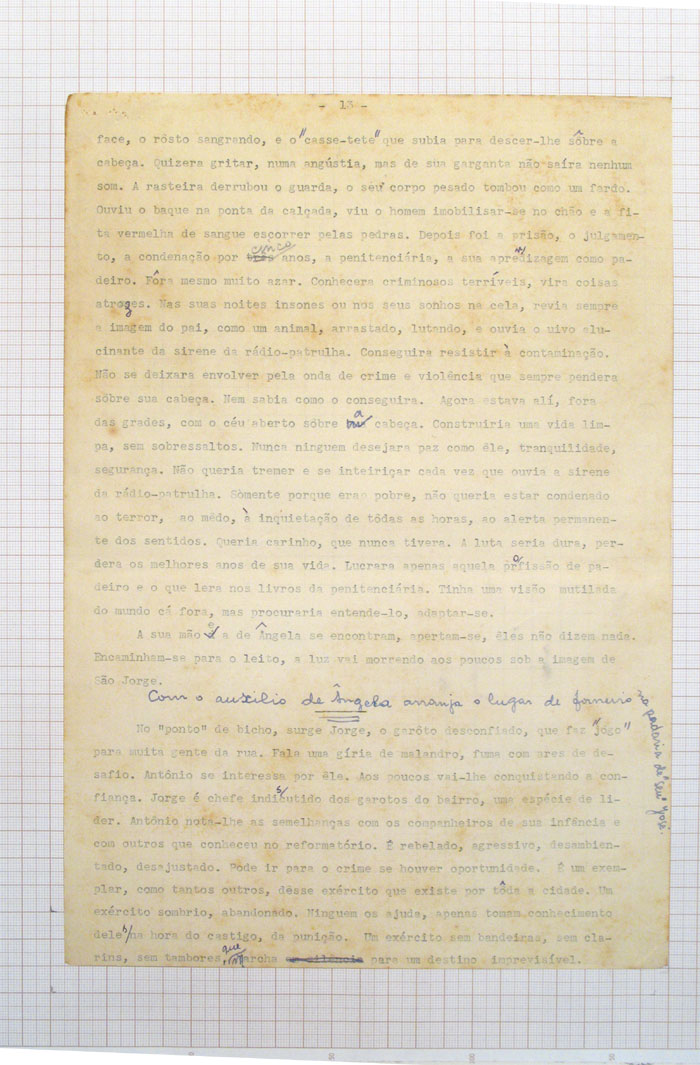 - 13 -
face, o rôsto sangrando, e o "casse-tete" que subia para descer-lhe sôbre a
cabeça. Quizera gritar, numa angústia, mas de sua garganta não saíra nenhum
som. A rasteira derrubou o guarda, o seu corpo pesado tombou como um fardo.
Ouviu o baque na ponta da calçada, viu o homem imobilisar-se no chão e a fi-
ta vermelha de sangue escorrer pelas pedras. Depois foi a prisão, o julgamen-
to, a condenação por cinco anos, a penitenciária, a sua aprendizagem como pa-
deiro. Fôra mesmo muito azar. Conhecera criminosos terríveis, vira coisas
atrozes. Nas suas noites insones ou nos seus sonhos na cela, revia sempre
a imagem do pai, como um animal, arrastado, lutando, e ouvia o uivo alu-
cinante da sirene da rádio-patrulha. Conseguira resistir à contaminação.
Não se deixara envolver pela onda de crime e violência que sempre pendera
sôbre sua cabeça. Nem sabia como o conseguira. Agora estava alí, fora
das grades, com o céu aberto sôbre a cabeça. Construiria uma vida lim-
pa, sem sobressaltos. Nunca ninguem desejara paz como êle, tranquilidade,
segurança. Não queria tremer e se inteiriçar cada vez que ouvia a sirene
da rádio-patrulha. Sòmente porque era pobre, não queria estar condenado
ao terror, ao mêdo, à inquietação de tôdas as horas, ao alerta permanen-
te dos sentidos. Queria carinho, que nunca tivera. A luta seria dura, per-
dera os melhores anos de sua vida. Lucrara apenas aquela profissão de pa-
deiro e o que lera nos livros da penitenciária. Tinha uma visão mutilada
do mundo cá fora, mas procuraria entende-lo, adaptar-se.
A sua mão e a de Ângela se encontram, apertam-se, êles não dizem nada.
Encaminham-se para o leito, a luz vai morrendo aos poucos sob a imagem de
São Jorge.
Com o auxílio de Ângela arranja o lugar de forneiro na padaria de "seu" José.
No "ponto" de bicho, surge Jorge, o garôto desconfiado, que faz "jogo"
para muita gente da rua. Fala uma gíria de malandro, fuma com ares de de-
safio. Antônio se interessa por êle. Aos poucos vai-lhe conquistando a con-
fiança. Jorge é chefe indiscutido dos garotos do bairro, uma espécie de li-
der. Antônio nota-lhe as semelhanças com os companheiros de sua infância e
com outros que conheceu no reformatório. É rebelado, agressivo, desambien-
tado, desajustado. Pode ir para o crime se houver oportunidade. É um exem-
plar, como tantos outros, dêsse exército que existe por tôda a cidade. Um
exército sombrio, abandonado. Ninguem os ajuda, apenas tomam conhecimento
deles na hora do castigo, da punição. Um exército sem bandeiras, sem cla-
rins, sem tambores, que marcha em silêncio para um destino imprevisível.